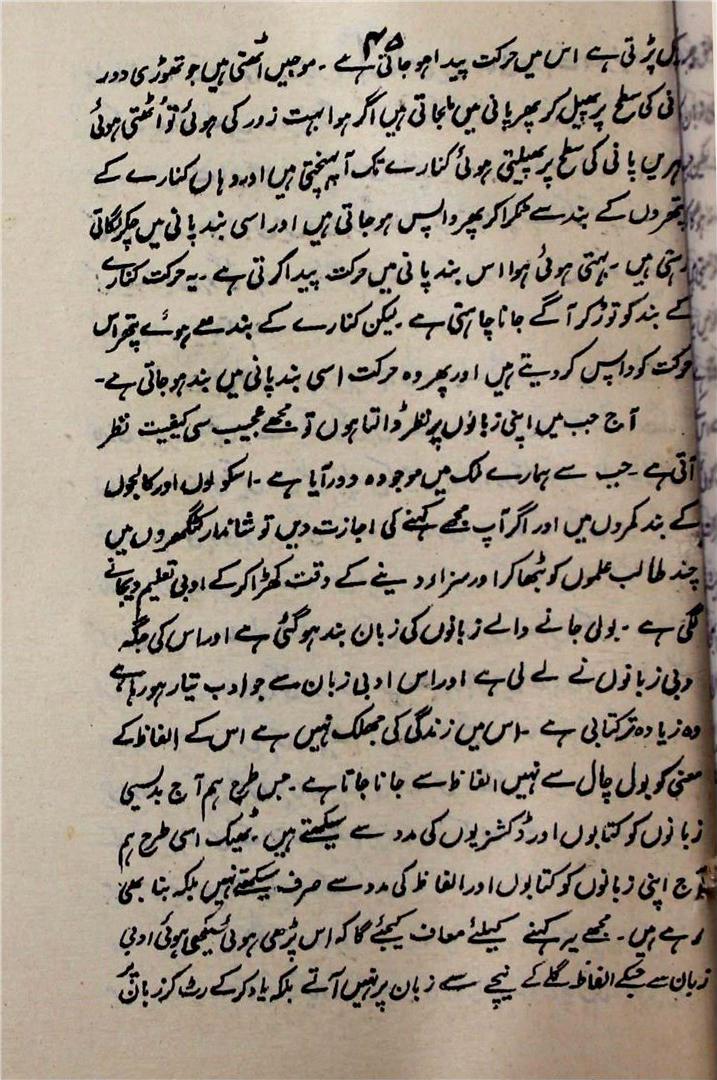 ۴۵
پڑتی ہے اس میں حرکت پیدا ہو جاتی ہے ۔ موجیں اٹھتی ہیں جو تھوڑی دور
پانی کی سطح پر پھیل کر پھر پانی میں مل جاتی ہیں اگر ہوا بہت زور کی ہوئی تو اٹھتی ہوئی
لہریں پانی کی سطح پر پھیلتی ہوئی کنارے تک آ پہنچتی ہیں اور وہاں کنارے کے
پتھروں کے بند سے ٹکرا کر پھر واپس ہو جاتی ہیں اور اسی بند پانی میں چکر لگاتی
رہتی ہیں ۔ بہتی ہوئی ہوا اس بند پانی میں حرکت پیدا کرتی ہے ۔ یہ حرکت کنارے
کے بند کو توڑ کر آگے جانا چاہتی ہے ۔ لیکن کنارے کے بندھے ہوئے پتھر اس
حرکت کو واپس کر دیتے ہیں اور پھر وہ حرکت اسی بند پانی میں بند ہو جاتی ہے ۔
آج جب میں اپنی زبانوں پر نظر ڈالتا ہوں تو مجھے عجیب سی کیفیت نظر
آتی ہے ۔ جب سے ہمارے ملک میں موجودہ دور آیا ہے ۔ اسکولوں اور کالجوں
کے بند کمروں میں اور اگر آپ مجھے کہنے کی اجازت دیں تو شاندار کٹگھروں میں
چند طالب علموں کو بٹھا کر اور سزا دینے کے وقت کھڑا کر کے ادبی تعلیم دیجانے
لگی ہے ۔ بولی جانے والے زبانوں کی زبان بند ہو گئی ہے اور اس کی جگہ
ادبی زبانوں نے لے لی ہے اور اس ادبی زبان سے جو ادب تیار ہو رہا ہے
وہ زیادہ تر کتابی ہے ۔ اس میں زندگی کی جھلک نہیں ہے اس کے الفاظ کے
معنی کو بول چال سے نہیں الفاظ سے جانا جاتا ہے ۔ جس طرح ہم آج بدیسی
زبانوں کو کتابوں اور ڈکشنریوں کی مدد سے سیکھتے ہیں ۔ ٹھیک اسی طرح ہم
آج اپنی زبانوں کو کتابوں اور الفاظ کی مدد سے صرف سیکھتے نہیں بلکہ بنا بھی
رہے ہیں ۔ مجھے یہ کہنے کیلئے معاف کیجئے گا کہ اس پڑھی ہوئی سیکھی ہوئی ادبی
زبان سے جسکے الفاظ گلے کے نیچے سے زبان پر نہیں آتے بلکہ یاد کر کے رٹ کر زبان پر